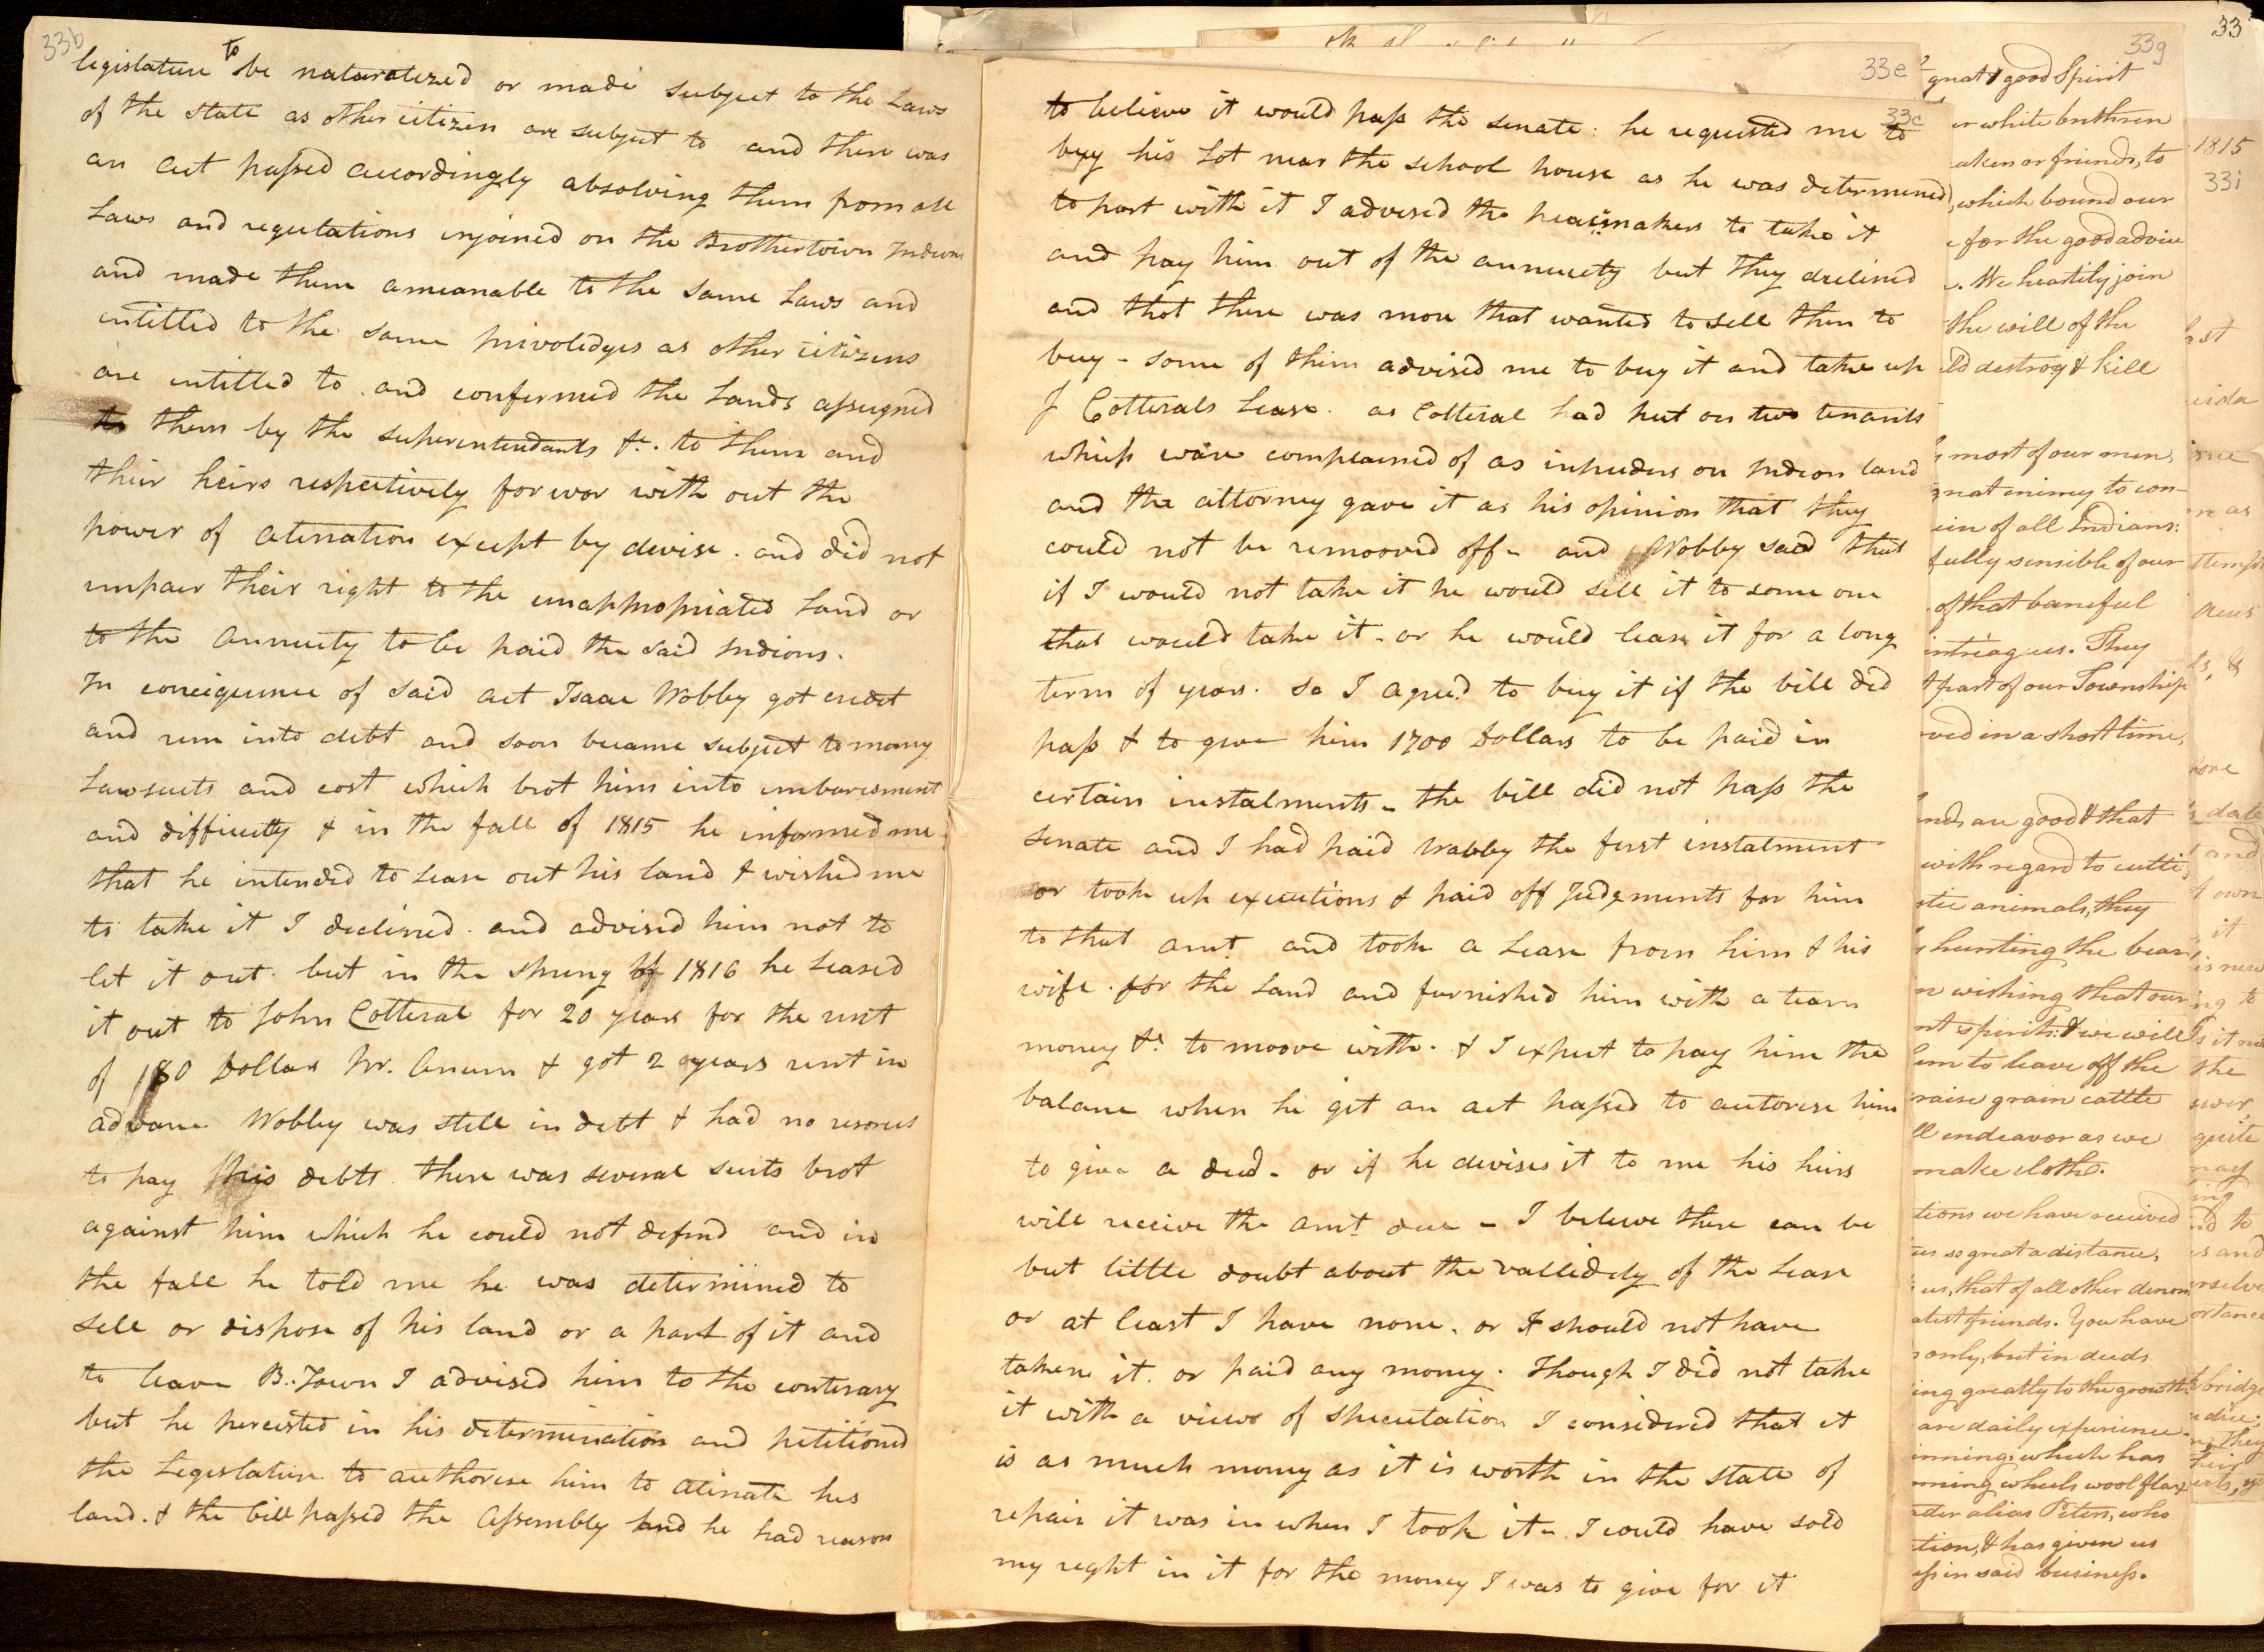 33b
legislature to be naturalized or made subject to the Laws
of the State as other citizen are subject to and there was
an act passed accordingly absolving them from all
Laws and regulations injoined on the Brothertown Indians
and made them ameanable to the same Laws and
intitled to the same privoledges as other citizens
are intitled to and confirmed the Lands assigned
to them by the superintendants &c. to them and
their heirs respectively forever with out the
power of alination except by devise. and did not
impair their right to the unappropriated Land or
to the annuity to be paid the said Indians.
In conciquence of said act Isaac Wobby got credit
and run into debt and soon became subject to many
Lawsuits and cost which brot him into imbaresment
and difficulty & in the fall of 1815 he informed me
that he intended to Lease out his land & wished me
to take it I declined. and advised him not to
let it out. but in the spring of 1816 he Leased
it out to John Cotteral for 20 years for the rent
of 180 Dollars Pr. Anum & got 2 years rent in
advance Wobby was still in debt & had no resorces
to pay his debts. there was several suits brot
against him which he could not defend and in
the fall he told me he was determined to
sell or dispose of his land or a part of it and
to leave B. Town I advised him to the conterary
but he percisted in his determination and petitioned
the Legislature to authorise him to alinate his
land. & the bill passed the Assembly and he had reason
33e
33c
to believe it would pass the senate. he requested me to
buy his Lot near the school house as he was determined
to part with it I advised the peacemakers to take it
and pay him out of the annuity but they declined
and that there was more that wanted to sell then to
buy - some of them advised me to buy it and take up
J Cotterals Lease. as Cotteral had put on two tenants
which ware complained of as intruders on Indian land
and the attorney gave it as his opinion that they
could not be remooved off - and Wobby said that
if I would not take it he would sell it to some one
that would take it - or he would lease it for a long
term of years. so I agreed to buy it if the bill did
pass & to give him 1700 Dollars to be paid in
certain instalments - the bill did not pass the
senate and I had paid Wabby the first instalment
or took up executions & paid off Judgments for him
to that amt. and took a Lease from him & his
wife. for the Land and furnished him with a team
money &c. to moove with. & I expect to pay him the
balance when he git an act passed to autorise him
to give a deed - or if he devises it to me his heirs
will receive the amt due - I beleive there can be
but little doubt about the vallidely of the Lease
or at least I have none. or I should not have
taken it. or paid any money. though I did not take
it with a view of speculation I considered that it
is as much money as it is worth in the state of
repair it was in when I took it - I could have sold
my right in it for the money I was to give for it
33g
great & good Spirit
white brethren
or friends, to
which bound our
for the good advice
We heartily join
the will of the
destroy & kill
most of our men,
enimy to con-
of all Indians:
fully sensible of our
of that baneful
intreagues. They
part of our Township
in a short time,
are good & that
with regard to cutti
animals, they
hunting the bear,
wishing that our
spirits: & we will
to leave off the
raise grain cattle
endeavor as we
make cloths.
we have received
so great a distance,
us, that of all other denom
friends. You have
only, but in deeds
greatly to the growth
are daily experience
which has
wheels wool flax
alias Peters, who
& has given us
in said business.
33
1815
33i
as
&
date
and
own
it
is new
to
it
the
quite
may
to
and
bridge
they